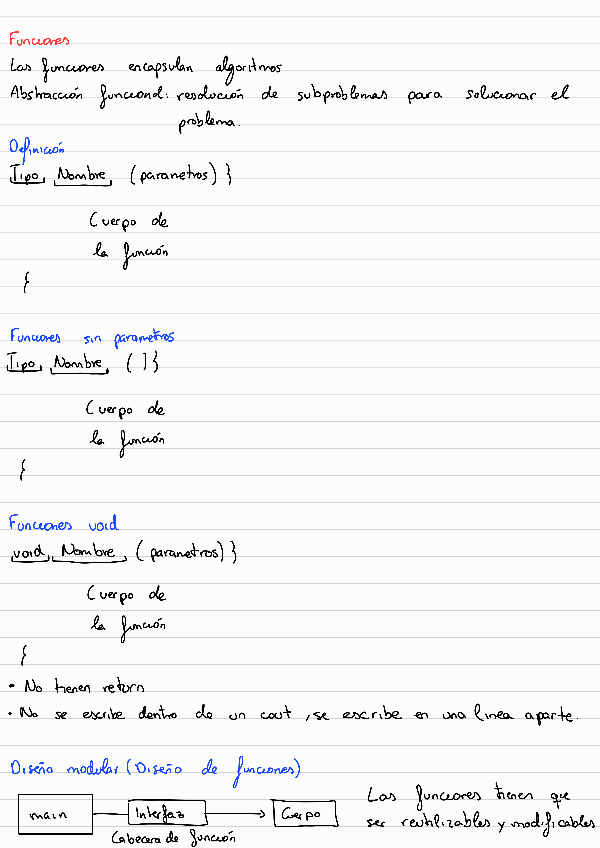 Funciones
Las funciones encapsulan algoritmos
Abstracción funcional: resolución de subproblemas para solucionar el
problema.
Definición
Tipo Nombre (parametros) }
Cuerpo de
la función
{
Funciones sin parametros
Tipo Nombre ( ) }
Cuerpo de
la función
{
Funciones void
void Nombre (parametros) }
Cuerpo de
la función
{
• No tienen return
• No se escribe dentro de un cout, se escribe en una linea aparte.
Diseño modular (Diseño de funciones)
main Interfaz Cuerpo
Cabecera de función
Las funciones tienen que
ser reutilizables y modificables